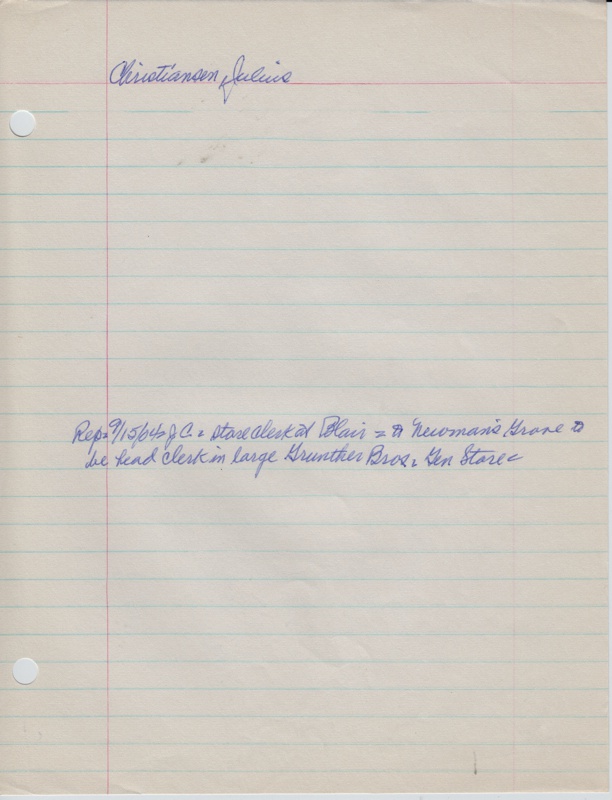 Christiansen, Julius
Rep= 9/15/04= J C. = store clerk at Blair = to Newman's Grove to
be head clerk in large Grunther Bros. Gen Store=